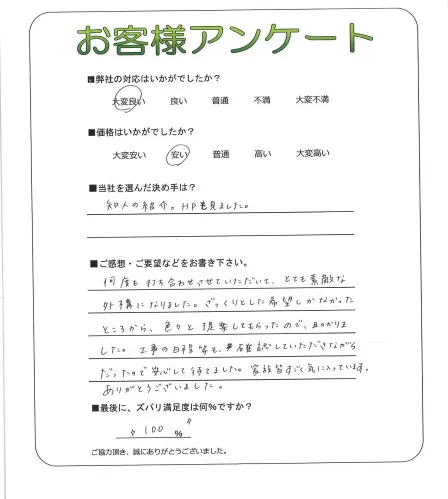 お客様アンケート
■弊社の対応はいかがでしたか？
大変良い 良い 普通 不満 大変不満
■価格はいかがでしたか？
大変安い 安い 普通 高い 大変高い
■当社を選んだ決め手は？
知人の紹介。HPも見ました。
■ご感想・ご要望などをお書き下さい。
何度も打ち合わせさせていただいて、とても素敵な
外構になりました。ざっくりとした希望しかなかった
ところから、色々と提案してもらったので、助かりま
した。工事の日程等も、確認していただきながら
だったので安心して待てました。家族皆すごく気に入っています。
ありがとうございました。
■最後に、ズバリ満足度は何％ですか？
100 ％
ご協力頂き、誠にありがとうございました。